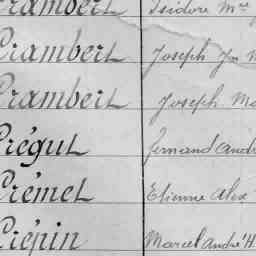 Crambert Isidore Mie
Crambert Joseph Jn M
Crambert Joseph Ma
Crégut Fernand André
Crémet Etienne Alex
Crépin Marcel André H